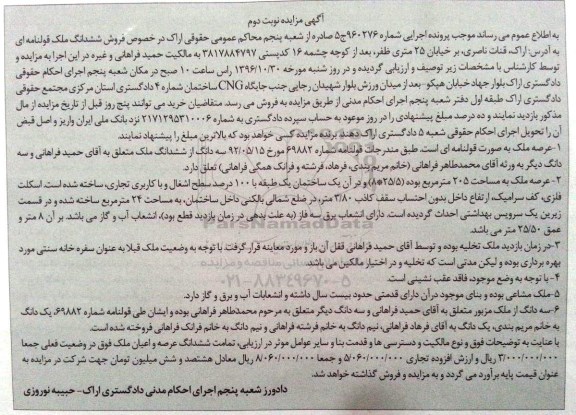 آگهی مزایده نوبت دوم
به اطلاع عموم می رساند موجب پرونده اجرایی شماره ۹۶۰۲۷۶ج۵ صادره از شعبه پنجم محاکم عمومی حقوقی اراک در خصوص فروش ششدانگ ملک قولنامه ای
به آدرس: اراک، قنات ناصری، بر خیابان ۲۵ متری ظفر، بعد از کوچه چشمه ۱۶ کدپستی ۳۸۱۷۸۸۴۷۹۷ به مالکیت حمید فراهانی و غیره در این اجرا به مزایده و
توسط کارشناس با مشخصات زیر توصیف و ارزیابی گردیده و در روز شنبه مورخه ۱۳۹۶/۱۰/۳۰ راس ساعت ۱۰ صبح در مکان شعبه پنجم اجرای احکام حقوقی
دادگستری اراک بلوار جهاد خیابان هپکو- بعد از میدان ورزش بلوار شهیدان رجایی جنب جایگاه CNG ساختمان شماره ۴ دادگستری استان مرکزی مجتمع حقوقی
دادگستری اراک طبقه اول دفتر شعبه پنجم اجرای احکام مدنی از طریق مزایده به فروش می رسد. متقاضیان خرید می توانند پنج روز قبل از تاریخ مزایده از مال
مذکور بازدید نمایند و ده درصد مبلغ پیشنهادی را در روز موعود به حساب سپرده دادگستری به شماره ۲۱۷۱۲۹۵۳۱۰۰۶ نزد بانک ملی ایران واریز و اصل قبض
آن را تحویل اجرای احکام حقوقی شعبه ۵ دادگستری اراک دهند برنده مزایده کسی خواهد بود که بالاترین مبلغ را پیشنهاد نمایند.
۱-عرصه ملک به صورت قولنامه ای است. طبق مندرجات قولنامه شماره ۶۹۸۸۲ مورخ ۹۲/۰۵/۱۵ سه دانگ از ششدانگ ملک متعلق به آقای حمید فراهانی و سه
دانگ دیگر به ورثه آقای محمدطاهر فراهانی (خانم مریم بندی، فرهاد، فرشته و فرانک همگی فراهانی) تعلق دارد.
۲-عرصه ملک به مساحت ۲۰۵ مترمربع بوده (۲۵/۵*۸) و در آن یک ساختمان یک طبقه با ۱۰۰ درصد سطح اشغال و با کاربری تجاری، ساخته شده است. اسکلت
فلزی، کف سرامیک، ارتفاع داخل بدون احتساب سقف کاذب ۳/۸۰ متر، در ضلع شمالی بالکنی داخل ساختمان، به مساحت ۲۴ مترمربع ساخته شده و در قسمت
زیرین یک سرویس بهداشتی احداث گردیده است. دارای انشعاب برق سه فاز (به علت بدهی در زمان بازدید قطع بود)، انشعاب آب و گاز می باشد. بر آن ۸ متر و
عمق ۲۵/۵۰ متر می باشد.
۳-در زمان بازدید ملک تخلیه بوده و توسط آقای حمید فراهانی قفل آن باز و مورد معاینه قرار گرفت با توجه به وضعیت ملک قبلا به عنوان سفره خانه سنتی مورد
بهره برداری بوده و لیکن مدتی است که تخلیه و در اختیار مالکین می باشد.
۴-با توجه به وضع موجود، فاقد عقب نشینی است.
۵-ملک مشاعی بوده و بنای موجود در آن دارای قدمتی حدود بیست سال داشته و انشعابات آب و برق و گاز دارد.
۶-سه دانگ از ملک مزبور متعلق به آقای حمید فراهانی و سه دانگ دیگر متعلق به مرحوم محمدطاهر فراهانی بوده و ایشان طی قولنامه شماره ۶۹۸۸۲، یک دانگ
به خانم مریم بندی، یک دانگ به آقای فرهاد فراهانی، نیم دانگ به خانم فرشته فراهانی و نیم دانگ به خانم فرانک فراهانی فروخته شده است.
با عنایت به توضیحات فوق و نوع مالکیت و دسترسی ها و قدمت بنا و سایر عوامل موثر در ارزیابی، تمامت ششدانگ عرصه و اعیان ملک فوق در وضعیت فعلی جمعا
۳/۰۰۰/۰۰۰/۰۰۰ ریال و ارزش افزوده تجاری ۵/۰۶۰/۰۰۰/۰۰۰ و جمعا ۸/۰۶۰/۰۰۰/۰۰۰ ریال معادل هشتصد و شش میلیون تومان جهت شرکت در مزایده به
عنوان قیمت پایه برآورد می گردد و به مزایده و فروش گذاشته خواهد شد.
دادورز شعبه پنجم اجرای احکام مدنی دادگستری اراک- حبیبه نوروزی
ParsNamadData
۰۲۱-۸۸۳۴۹۶۷۰-۵